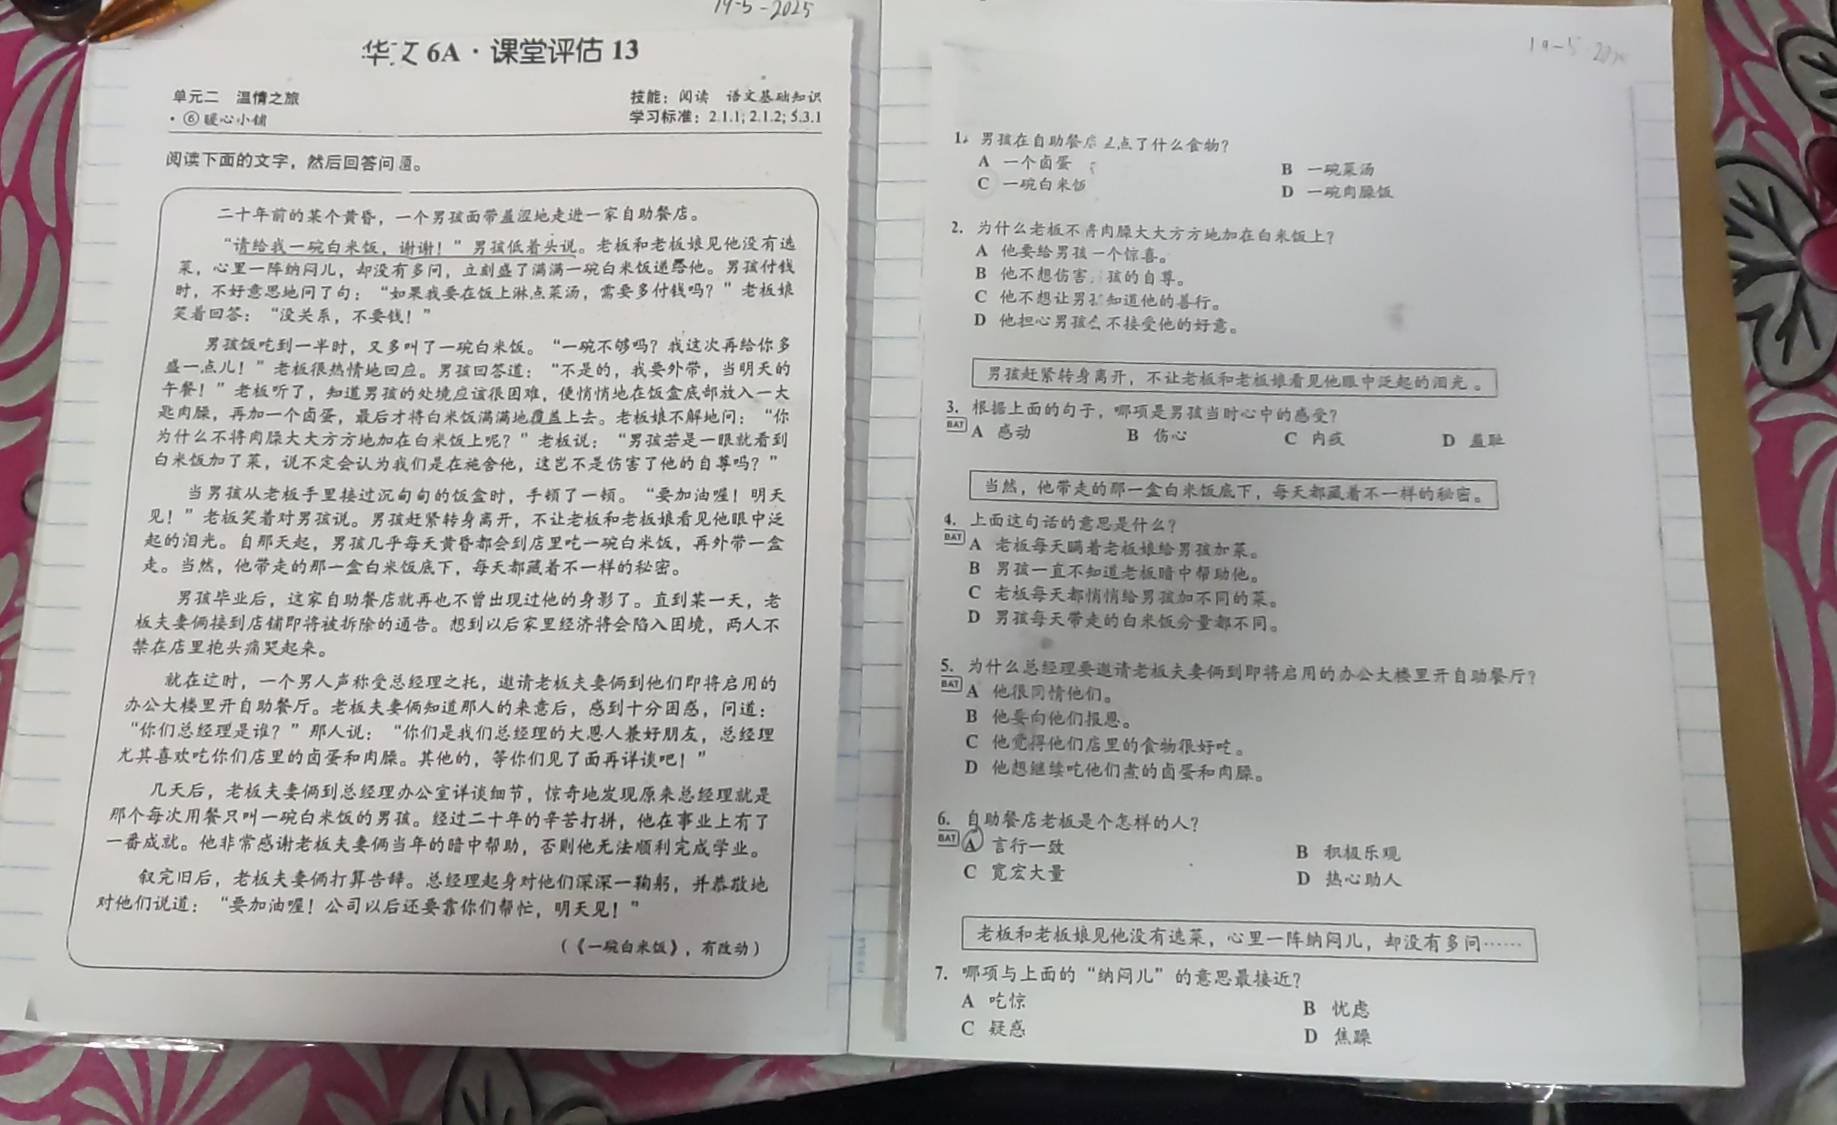 19-5-2025
华文 6A · 课堂评估 13
单元二 温情之旅
技能：阅读 语文基础知识
· ⑥ 暖心小铺
学习标准：2.1.1; 2.1.2; 5.3.1
阅读下面的文字，然后回答问题。
二十年前的某个黄昏，一个男孩面带羞涩地走进一家自助餐店。
“请给我一碗白米饭，谢谢！”男孩低着头说。老板和老板娘见他没有选
菜，心里一阵纳闷儿，却没有多问，立刻盛了满满一碗白米饭递给他。男孩付钱
时，不好意思地问了句：“如果我要在饭上淋点菜汤，需要多付钱吗？”老板娘
笑着回答：“没关系，不要钱！”
男孩饭吃到一半时，又多叫了一碗白米饭。“一碗不够吗？我这次再给你多
盛一点儿！”老板很热情地回应。男孩回答道：“不是的，我要外带，当明天的
午餐！”老板听了，知道男孩的处境应该很困难，便悄悄地在饭盒底部放入一大
匙肉臊，再加一个卤蛋，最后才将白米饭满满地覆盖上去。老板娘不解地问：“你
为什么不将肉臊大大方方地加在白米饭上呢？”老板说：“男孩若是一眼就看到
白米饭加了菜，说不定会认为我们是在施舍他，这岂不是伤害了他的自尊吗？”
当男孩从老板手里接过沉甸甸的饭盒时，手顿了一顿。“要加油喔！明天
见！”老板笑着对男孩说。男孩赶紧转身离开，不让老板和老板娘看见他眼中泛
起的泪光。自那天起，男孩几乎每天黄昏都会到店里吃一碗白米饭，再外带一盒
走。当然，他带走的那一盒白米饭底下，每天都藏着不一样的秘密。
男孩毕业后，这家自助餐店就再也不曾出现过他的身影了。直到某一天，老
板夫妻俩接到店铺即将被拆除的通告。想到以后家里经济将会陷入困境，两人不
禁在店里抱头痛哭起来。
就在这时，一个男人声称受总经理之托，邀请老板夫妻俩到他们即将启用的
办公大楼里开自助餐厅。老板夫妻俩知道那人的来意后，感到十分困惑，问道：
“你们总经理是谁？”那人说：“你们是我们总经理的大恩人兼好朋友，总经理
尤其喜欢吃你们店里的卤蛋和肉臊。其他的，等你们见了面再详谈吧！”
几天后，老板夫妻俩到总经理办公室详谈细节，惊奇地发现原来总经理就是
那个每次用餐只叫一碗白米饭的男孩。经过二十年的辛苦打拼，他在事业上有了
一番成就。他非常感谢老板夫妻俩当年的暗中帮助，否则他无法顺利完成学业。
叙完旧后，老板夫妻俩打算告辞。总经理起身对他们深深一鞠躬，并恭敬地
对他们说道：“要加油喔！公司以后还要靠你们帮忙，明天见！”
（《一碗白米饭》，有改动）
19-5
1. 男孩在自助餐店点了什么食物？
A 一个卤蛋
B 一碗菜汤
C 一碗白米饭
D 一碗肉臊饭
2. 为什么老板不将肉臊大大方方地加在白米饭上？
A 他要给男孩一个惊喜。
B 他不想伤害 孩的自尊。
C 他不想让男孩知道他的善行。
D 他担心男孩会不接受他的好意。
男孩赶紧转身离开，不让老板和老板娘看见他眼中泛起的泪光。
3. 根据上面的句子，哪项是男孩当时心中的感受？
BAT
A 感动
B 伤心
C 内疚
D 羞耻
当然，他带走的那一盒白米饭底下，每天都藏着不一样的秘密。
4. 上面这句话的意思是什么？
BAT
A 老板每天瞒着老板娘给男孩加菜。
B 男孩一直不知道老板暗中帮助他。
C 老板每天都悄悄给男孩加不同的菜。
D 男孩每天带走的白米饭分量都不同。
5. 为什么总经理要邀请老板夫妻俩到即将启用的办公大楼里开自助餐厅？
BAT
A 他很同情他们。
B 他要向他们报恩。
C 他觉得他们店里的食物很好吃。
D 他想继续吃他们煮的卤蛋和肉臊。
6. 自助餐店老板是个怎样的人？
BAT
A 言行一致
B 积极乐观
C 宽宏大量
D 热心助人
老板和老板娘见他没有选菜，心里一阵纳闷儿，却没有多问……
7. 哪项与上面的“纳闷儿”的意思最接近？
A 吃惊
B 忧虑
C 疑惑
D 焦躁